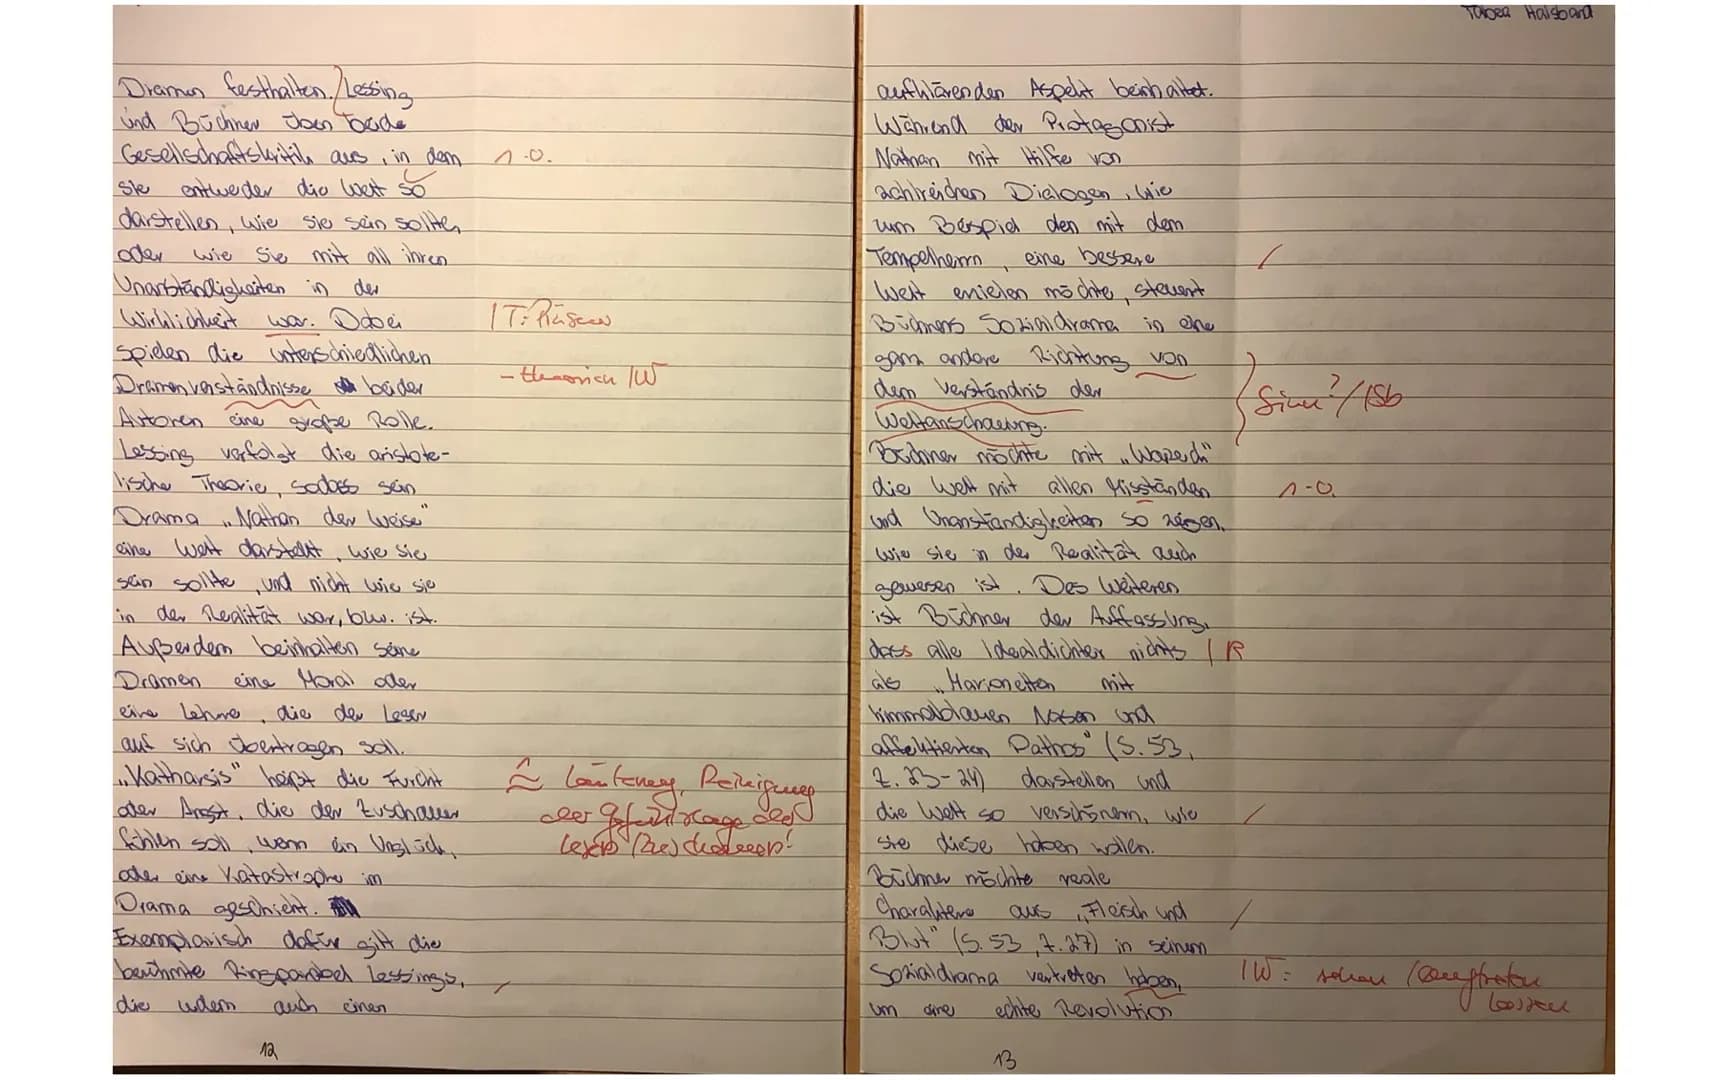 Tabea Halsband
Dramen festhalten. / Lessing
und Büchner üben beide
Gesellschaftskritik aus, in dem
sie entweder die Welt so
darstellen, wie sie sein sollte,
oder wie sie mit all ihren
Unanständigkeiten in der
Wirklichkeit war. Dabei
spielen die unterschiedlichen
Dramenverständnisse beider
Autoren eine große Rolle.
Lessing verfolgt die aristote-
lische Theorie, sodass sein
Drama „Nathan der Weise"
eine Welt darstellt, wie sie
sein sollte, und nicht wie sie
in der Realität war, bzw. ist.
Außerdem beinhalten seine
Dramen eine Moral oder
eine Lehre, die der Leser
auf sich übertragen soll.
„Katharsis" heißt die Furcht
oder Angst, die der Zuschauer
fühlen soll, wenn ein Unglück,
oder eine Katastrophe im
Drama geschieht.
Exemplarisch dafür gilt die
berühmte Ringparabel Lessings,
die zudem auch einen
12
n.o.
|T: Präsens
- theorien |W
≙ Läuterung, Reinigung
der Gefühlslage des
Lesers /Zuschauers!
aufklärenden Aspekt beinhaltet.
Während der Protagonist
Nathan mit Hilfe von
zahlreichen Dialogen, wie
zum Beispiel den mit dem
Tempelherrn, eine bessere
Welt erzielen möchte, steuert
Büchners Sozialdrama in eine
ganz andere Richtung von
dem Verständnis der
Weltanschauung.
Büchner möchte mit „Woyzeck"
die Welt mit allen Misständen
und Unanständigkeiten so zeigen,
wie sie in der Realität auch
gewesen ist. Des Weiteren
ist Büchner der Auffassung,
dass alle Idealdichter nichts
als „Marionetten mit
himmelblauen Nasen und
affektierten Pathos" (S. 53,
Z. 23-24) darstellen und
die Welt so verschönern, wie
sie diese haben wollen.
Büchner möchte reale
Charaktere aus „Fleisch und
Blut" (S. 53, Z. 27) in seinem
Sozialdrama vertreten haben,
um eine echte Revolution
13
Sinn? / |Sb
n.o.
| R
|W: